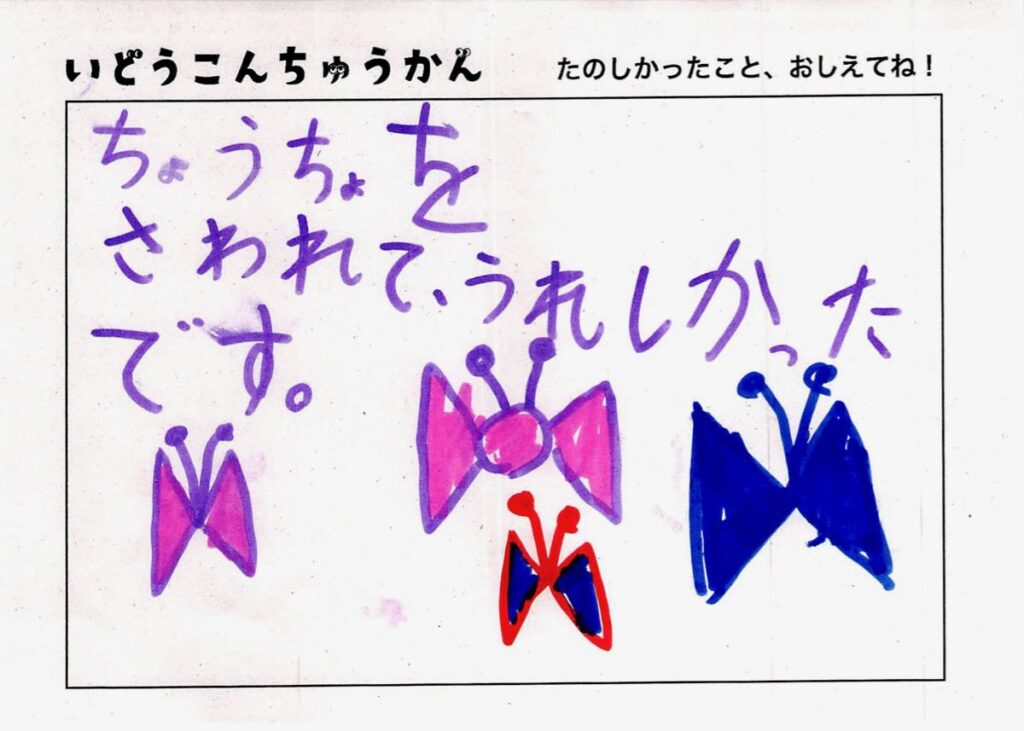 いどうこんちゅうかん
たのしかったこと、おしえてね！
ちょうちょを
さわれて、うれしかった
です。